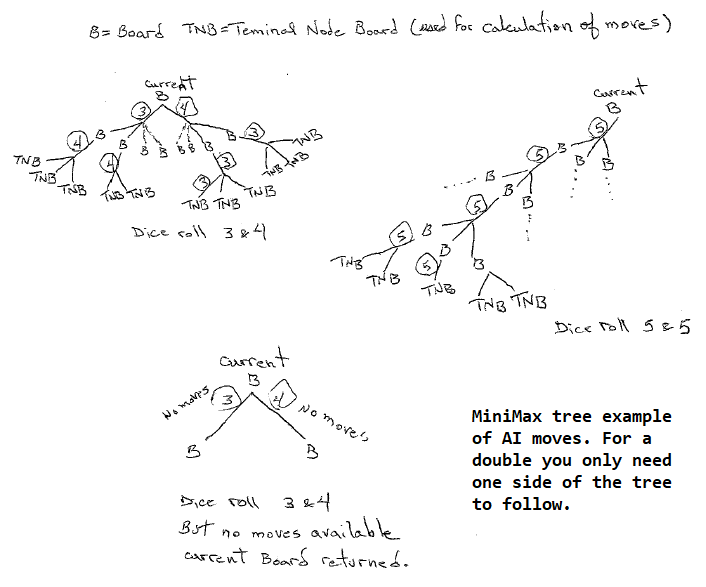 B= Board TNB=Teminal Node Board (used for calculation of moves)
Current
B
3 4
B B B B B B B
4 4 3 3 3
TNB TNB TNB TNB TNB TNB TNB TNB TNB TNB TNB
Dice roll 3 & 4
Current
B
5
B B B
5
B B B
5
B B B
5 5
TNB TNB TNB TNB TNB
Dice roll 5 & 5
Current
B
No moves 3 4 No moves
B B
Dice roll 3 & 4
But no moves available
current Board returned.
MiniMax tree example
of AI moves. For a
double you only need
one side of the tree
to follow.